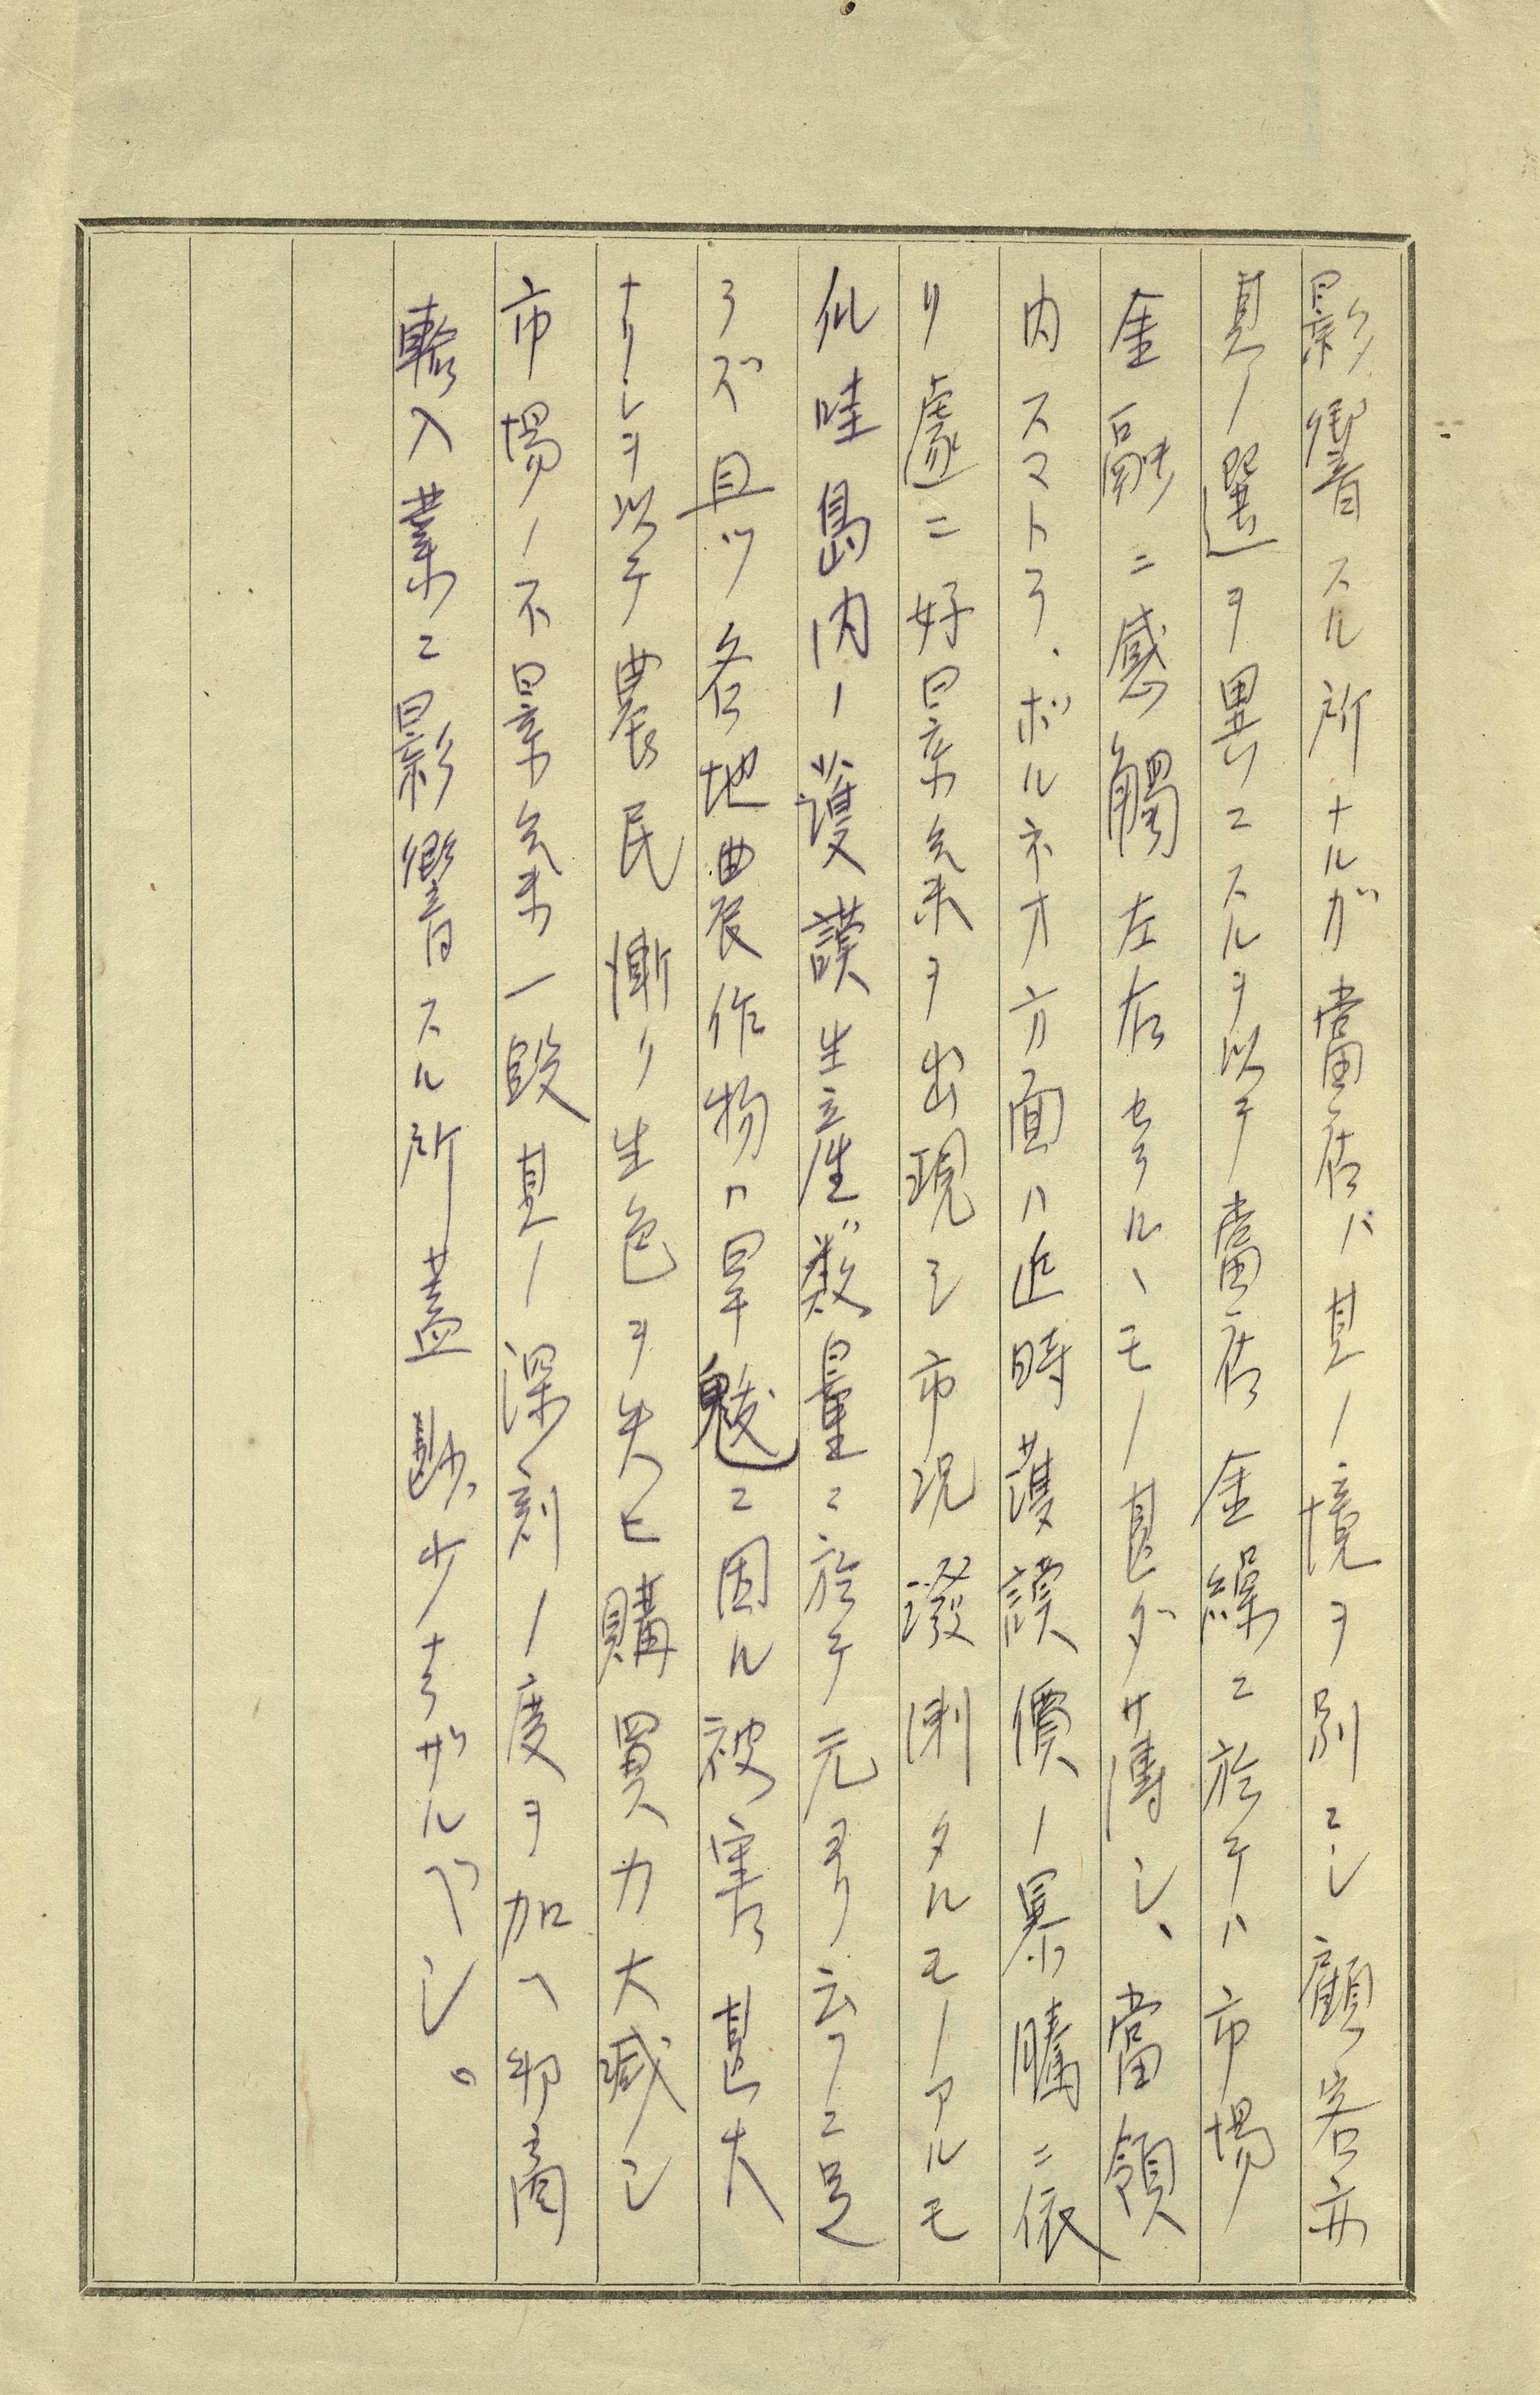 影響スル所ナルガ當店ハ其ノ境ヲ別ニシ顧客亦
其ノ選ヲ異ニスルヲ以テ當店金繰ニ於テハ市場
金融ニ感觸左右セラルヽモノ甚ダ薄シ、當領
内スマトラ、ボルネオ方面ハ近時護謨價ノ暴騰ニ依
リ遽ニ好景気ヲ出現シ市況溌溂タルモノアルモ
爪哇島内ノ護謨生産数量ニ於テ元ヨリ云フニ足
ラズ且ツ各地農作物ハ旱魃ニ因ル被害甚大
ナリシヲ以テ農民漸リ生色ヲ失ヒ購買力大減シ
市場ノ不景気一段其ノ深刻ノ度ヲ加ヘ邦商
輸入業ニ影響スル所蓋尠少ナラザルベシ。